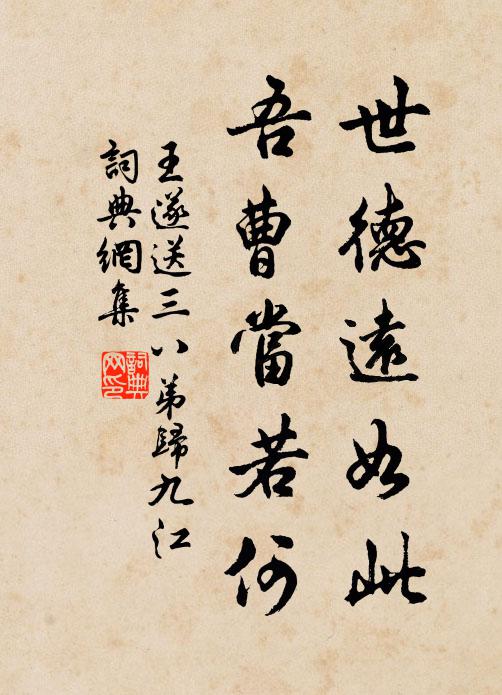 世德遠如此
吾曹當若何
王遂送三八弟歸九江
詞典網集
詞典
网印